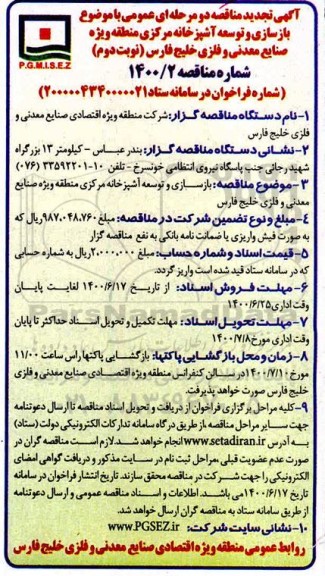 آگهی تجدید مناقصه دو مرحله ای عمومی با موضوع
بازسازی و توسعه آشپزخانه مرکزی منطقه ویژه
صنایع معدنی و فلزی خلیج فارس (نوبت دوم)
P.G.M.I.S.E.Z
شماره مناقصه ۱۴۰۰/۲
(شماره فراخوان در سامانه ستاد ۲۰۰۰۰۰۴۳۴۰۰۰۰۰۲۱)
۱-نام دستگاه مناقصه گزار: شرکت منطقه ویژه اقتصادی صنایع معدنی و
فلزی خلیج فارس
۲-نشانی دستگاه مناقصه گزار: بندرعباس - کیلومتر ۱۳ بزرگراه
شهید رجائی جنب پاسگاه نیروی انتظامی خونسرخ - تلفن ۱۰-۳۳۵۹۲۲۰۱ (۰۷۶)
۳-موضوع مناقصه: بازسازی و توسعه آشپزخانه مرکزی منطقه ویژه صنایع
معدنی و فلزی خلیج فارس
۴-مبلغ و نوع تضمین شرکت در مناقصه: مبلغ ۹۸۷،۰۴۸،۷۶۰ریال که
به صورت فیش واریزی یا ضمانت نامه بانکی به نفع مناقصه گزار
۵-قیمت اسناد و شماره حساب: مبلغ ۲،۰۰۰،۰۰۰ریال به شماره حسابی
که در سامانه ستاد قید شده است واریز گردد.
۶- مهلت فروش اسناد: از تاریخ ۱۴۰۰/۶/۱۷ لغایت پایان
وقت اداری ۱۴۰۰/۶/۲۵
۷-مهلت تحویل اسناد: مهلت تکمیل و تحویل اسناد حداکثر تا پایان
وقت اداری مورخ ۱۴۰۰/۷/۸
۸-زمان و محل بازگشایی پاکتها: بازگشایی پاکتها راس ساعت ۱۱/۰۰
مورخ ۱۴۰۰/۷/۱۰ در سالن کنفرانس منطقه ویژه اقتصادی صنایع معدنی و فلزی
خلیج فارس صورت خواهد پذیرفت.
۹-کلیه مراحل برگزاری فراخوان از دریافت و تحویل اسناد مناقصه تا ارسال دعوتنامه
جهت سایر مراحل مناقصه از طریق درگاه سامانه تدارکات الکترونیکی دولت (ستاد)
به آدرس www.setadiran.ir انجام خواهد شد. لازم است مناقصه گران در
صورت عدم عضویت قبلی، مراحل ثبت نام در سایت مذکور و دریافت گواهی امضای
الکترونیکی را جهت شرکت در مناقصه محقق سازند. تاریخ انتشار فراخوان در سامانه
تاریخ ۱۴۰۰/۶/۱۷ می باشد. اطلاعات و اسناد مناقصه عمومی و ارسال دعوتنامه
از طریق سامانه ستاد به مناقصه گران ارسال خواهد شد.
۱۰-نشانی سایت شرکت: www.PGSEZ.ir
روابط عمومی منطقه ویژه اقتصادی صنایع معدنی و فلزی خلیج فارس